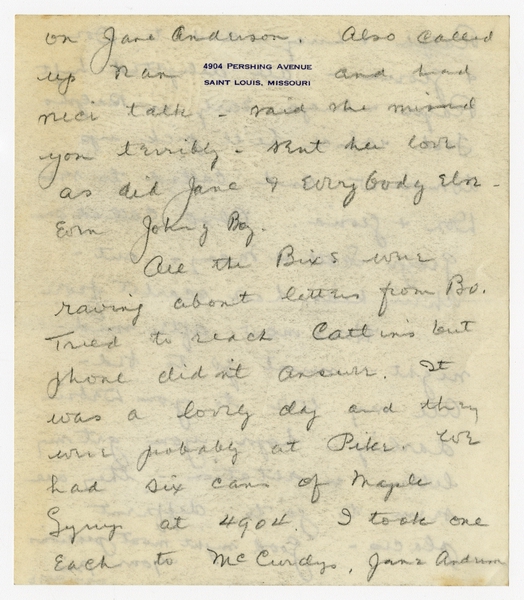 on Jane Anderson. Also called
4904 PERSHING AVENUE
SAINT LOUIS, MISSOURI
up Nan and had
nice talk - said she missed
you terribly - sent her love
as did Jane & Everybody Else -
Even Johny Boy.
All the Bixs were
raving about letters from Bo.
Tried to reach Catlins but
phone didn't answer. It
was a lovely day and they
were probably at Pike. We
had six cans of Maple
Syrup at 4904. I took one
Each to McCurdys, Jane Anderson